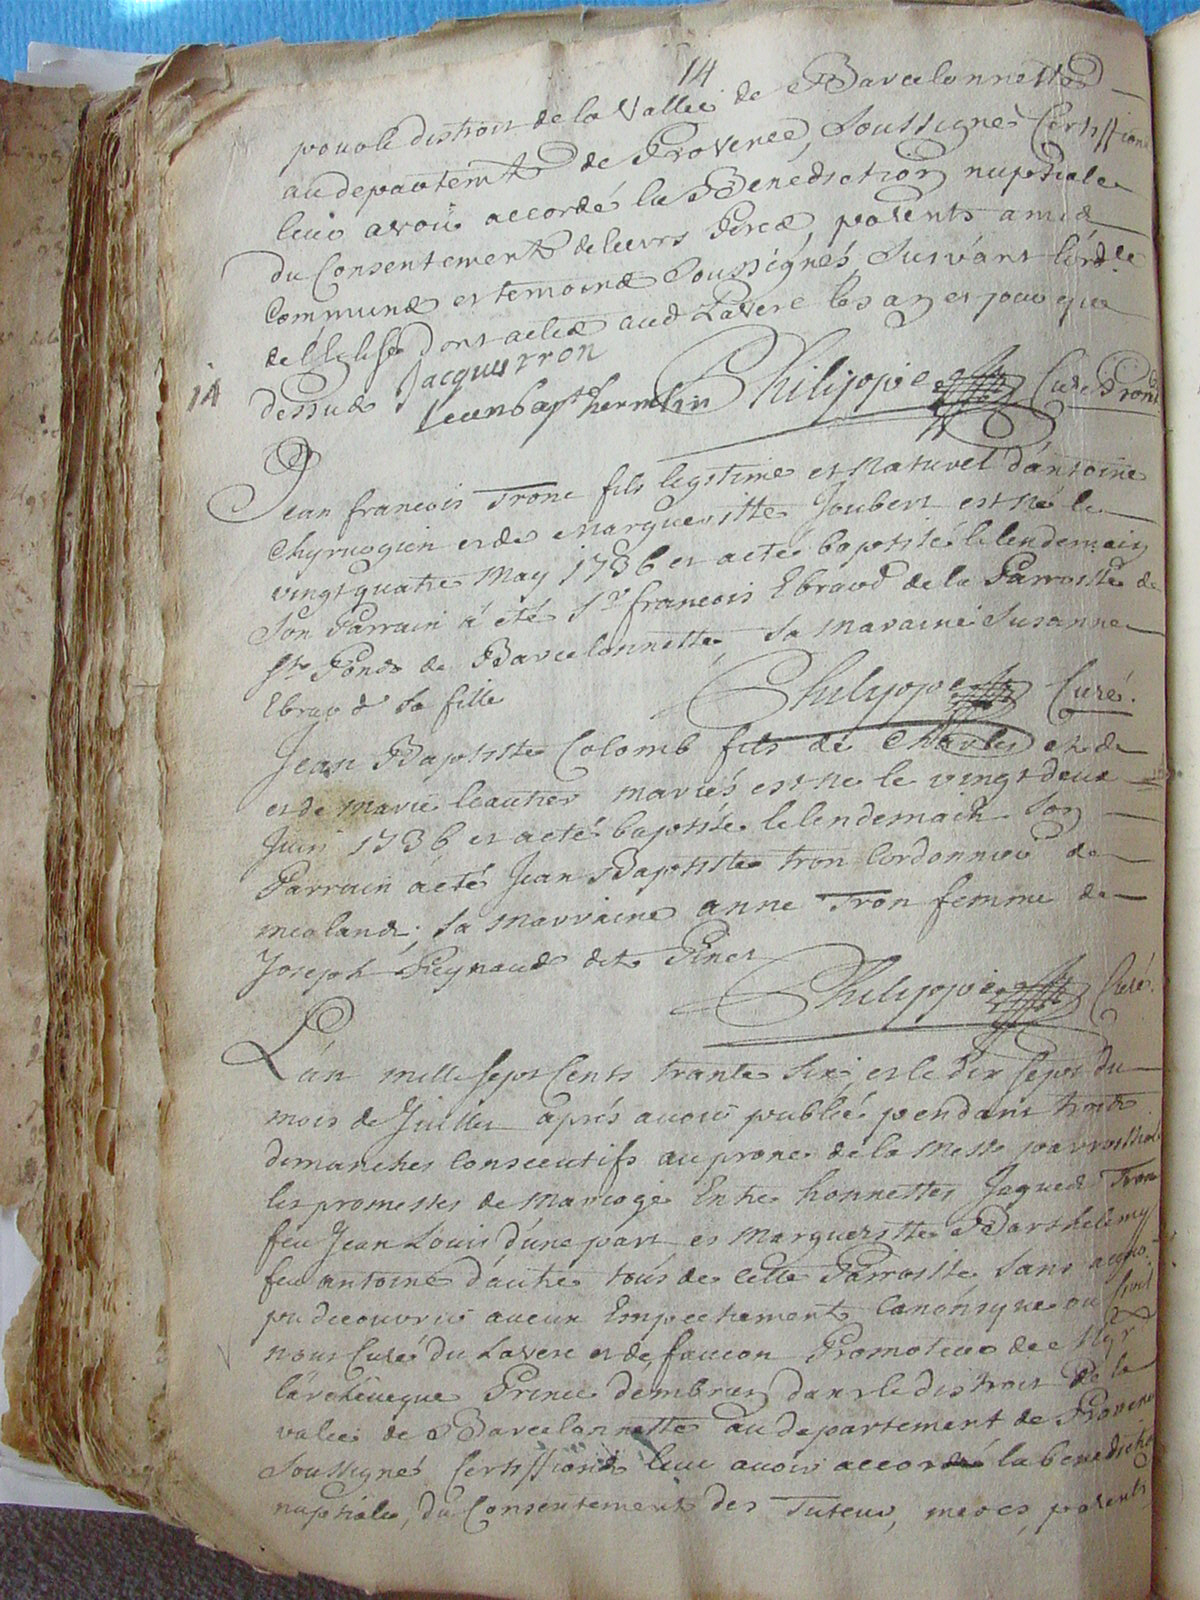 14
pour le distroit de la Vallée de Barcelonnette
au departemt de Provence, Soussigné Certiffions
leur avoir accordé la Bénédiction nuptiale
du Consentement de leurs Peres, parents amis
Communs et temoins Soussignés Suivant l'ord.ce
de l'Eglise dont acte aud Laverc les an et jour que
dessus Jacques tron
14
Jeanbapt hermelin Philippe Curé
Jean francois Tronc fils legitime et Naturel d'antoine
Chyrurgien et de Margueritte Joubert est né le
vingt quatre May 1736 et a eté baptisé le lendemain
Son Parrain a eté Sr francois Ebraud de la Parroisse de
St Ponds de Barcelonnette, Sa Maraine Susanne
Ebraud Sa fille
Philippe Curé.
Jean Baptiste Colomb fils de Charles et de
et de Marie leautier mariés est né le vingt deux
Juin 1736 et a eté baptisé le lendemain Son
Parrain a eté Jean Baptiste tron Cordonnier de
meolans, Sa Marraine anne Tron femme de
Joseph Reynaud dit Pinet
Philippe Curé.
L'an mille Sept Cents trante Six, et le dix Sept du
mois de Juillet aprés avoir publié pendant trois
dimanches Consecutifs au prone de la Messe parroissiale
les promesses de Mariage Entre honnettes Jaques Tron
feu Jean Louis d'une part et Margueritte Barthelemy
feu antoine d'autre tous de Cette Parroisse Sans avoir
pu decouvrir aucun Empechement Canonique ou Civil
nous Curé du Laverc et de faucon Promoteur de Mgr
l'archevêque Prince d'embrun dans le distroit de la
valée de Barcelonnette au departement de Provence
Soussigné Certiffions leur avoir accordé la benediction
nuptiale, du Consentement des Tuteur, meres, parents